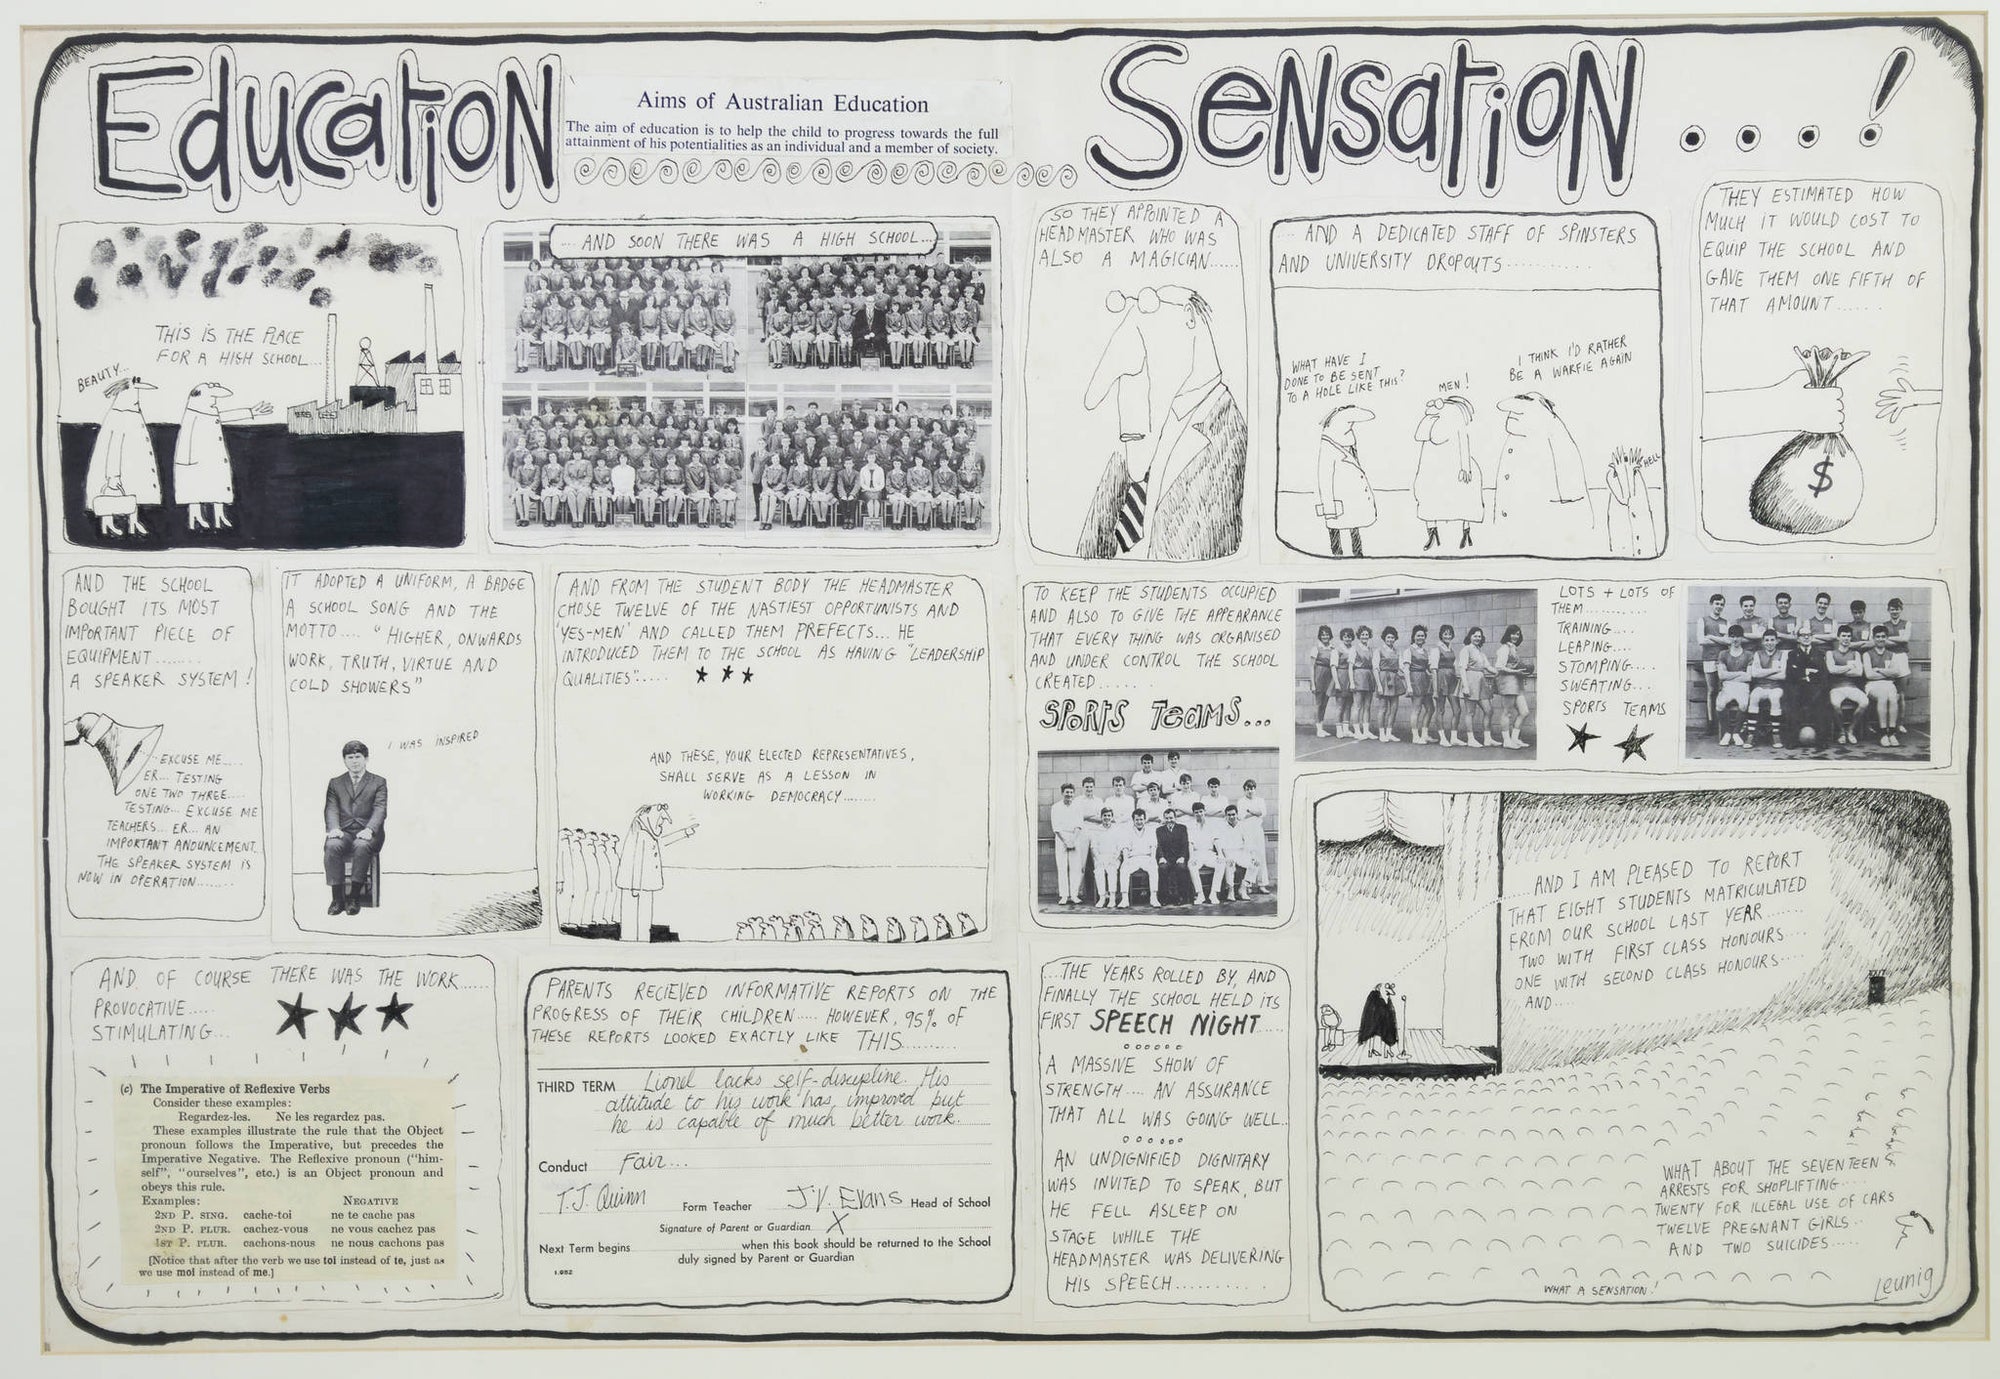 Education
Aims of Australian Education
The aim of education is to help the child to progress towards the full
attainment of his potentialities as an individual and a member of society.
Sensation ....!
THIS IS THE PLACE
FOR A HIGH SCHOOL...
BEAUTY...
... AND SOON THERE WAS A HIGH SCHOOL...
SO THEY APPOINTED A
HEADMASTER WHO WAS
ALSO A MAGICIAN......
... AND A DEDICATED STAFF OF SPINSTERS
AND UNIVERSITY DROPOUTS..........
WHAT HAVE I
DONE TO BE SENT
TO A HOLE LIKE THIS?
MEN!
I THINK I'D RATHER
BE A WARFIE AGAIN
HELL
THEY ESTIMATED HOW
MUCH IT WOULD COST TO
EQUIP THE SCHOOL AND
GAVE THEM ONE FIFTH OF
THAT AMOUNT......
$
AND THE SCHOOL
BOUGHT ITS MOST
IMPORTANT PIECE OF
EQUIPMENT........
A SPEAKER SYSTEM!
EXCUSE ME....
ER... TESTING
ONE TWO THREE....
TESTING... EXCUSE ME
TEACHERS... ER... AN
IMPORTANT ANOUNCEMENT..
THE SPEAKER SYSTEM IS
NOW IN OPERATION........
IT ADOPTED A UNIFORM, A BADGE
A SCHOOL SONG AND THE
MOTTO.... "HIGHER, ONWARDS
WORK, TRUTH, VIRTUE AND
COLD SHOWERS"
I WAS INSPIRED
AND FROM THE STUDENT BODY THE HEADMASTER
CHOSE TWELVE OF THE NASTIEST OPPORTUNISTS AND
'YES-MEN' AND CALLED THEM PREFECTS... HE
INTRODUCED THEM TO THE SCHOOL AS HAVING "LEADERSHIP
QUALITIES".....
AND THESE, YOUR ELECTED REPRESENTATIVES,
SHALL SERVE AS A LESSON IN
WORKING DEMOCRACY........
TO KEEP THE STUDENTS OCCUPIED
AND ALSO TO GIVE THE APPEARANCE
THAT EVERY THING WAS ORGANISED
AND UNDER CONTROL THE SCHOOL
CREATED......
SPORTS TEAMS...
LOTS + LOTS OF
THEM...........
TRAINING....
LEAPING....
STOMPING....
SWEATING...
SPORTS TEAMS
AND OF COURSE THERE WAS THE WORK......
PROVOCATIVE.....
STIMULATING...
(c) The Imperative of Reflexive Verbs
Consider these examples:
Regardez-les. Ne les regardez pas.
These examples illustrate the rule that the Object
pronoun follows the Imperative, but precedes the
Imperative Negative. The Reflexive pronoun ("him-
self", "ourselves", etc.) is an Object pronoun and
obeys this rule.
Examples: NEGATIVE
2ND P. SING. cache-toi ne te cache pas
2ND P. PLUR. cachez-vous ne vous cachez pas
1ST P. PLUR. cachons-nous ne nous cachons pas
[Notice that after the verb we use toi instead of te, just as
we use moi instead of me.]
PARENTS RECIEVED INFORMATIVE REPORTS ON THE
PROGRESS OF THEIR CHILDREN..... HOWEVER, 95% OF
THESE REPORTS LOOKED EXACTLY LIKE THIS..........
THIRD TERM Lionel lacks self-discipline. His
attitude to his work has improved but
he is capable of much better work.
Conduct Fair...
T.J. Quinn Form Teacher J.V. Evans Head of School
Signature of Parent or Guardian X
Next Term begins when this book should be returned to the School
duly signed by Parent or Guardian
....THE YEARS ROLLED BY, AND
FINALLY THE SCHOOL HELD ITS
FIRST SPEECH NIGHT....
A MASSIVE SHOW OF
STRENGTH.... AN ASSURANCE
THAT ALL WAS GOING WELL..
AN UNDIGNIFIED DIGNITARY
WAS INVITED TO SPEAK, BUT
HE FELL ASLEEP ON
STAGE WHILE THE
HEADMASTER WAS DELIVERING
HIS SPEECH..........
.....AND I AM PLEASED TO REPORT
THAT EIGHT STUDENTS MATRICULATED
FROM OUR SCHOOL LAST YEAR......
TWO WITH FIRST CLASS HONOURS....
ONE WITH SECOND CLASS HONOURS....
AND....
WHAT ABOUT THE SEVENTEEN
ARRESTS FOR SHOPLIFTING....
TWENTY FOR ILLEGAL USE OF CARS
TWELVE PREGNANT GIRLS...
AND TWO SUICIDES.....
WHAT A SENSATION!
Leunig